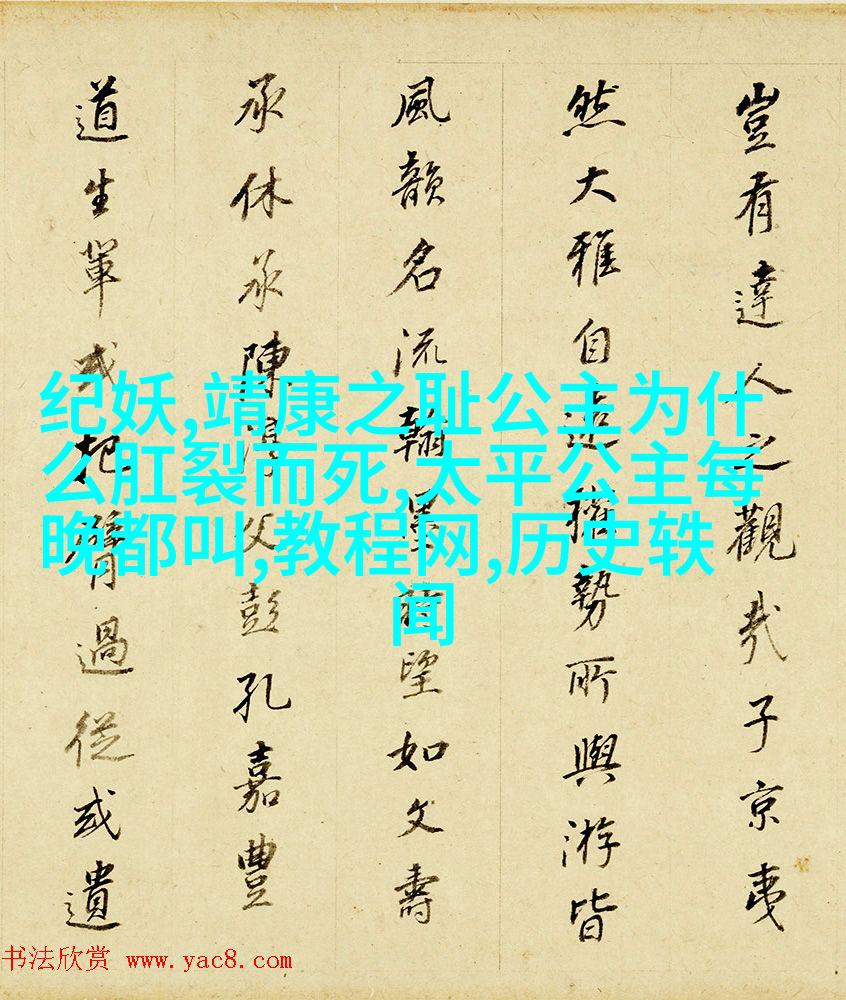 豈有達人之觀哉子京夷
然大雅自遠權勢所與游皆
風韻名流翰墨時望如文壽
承休承陳淳父彭孔嘉豐
道生輩或把臂過從或遺
纪妖,靖康之耻公主为什
么肛裂而死,太平公主每
晚都叫,教程网,历史轶
闻
书法欣赏 www.yac8.com